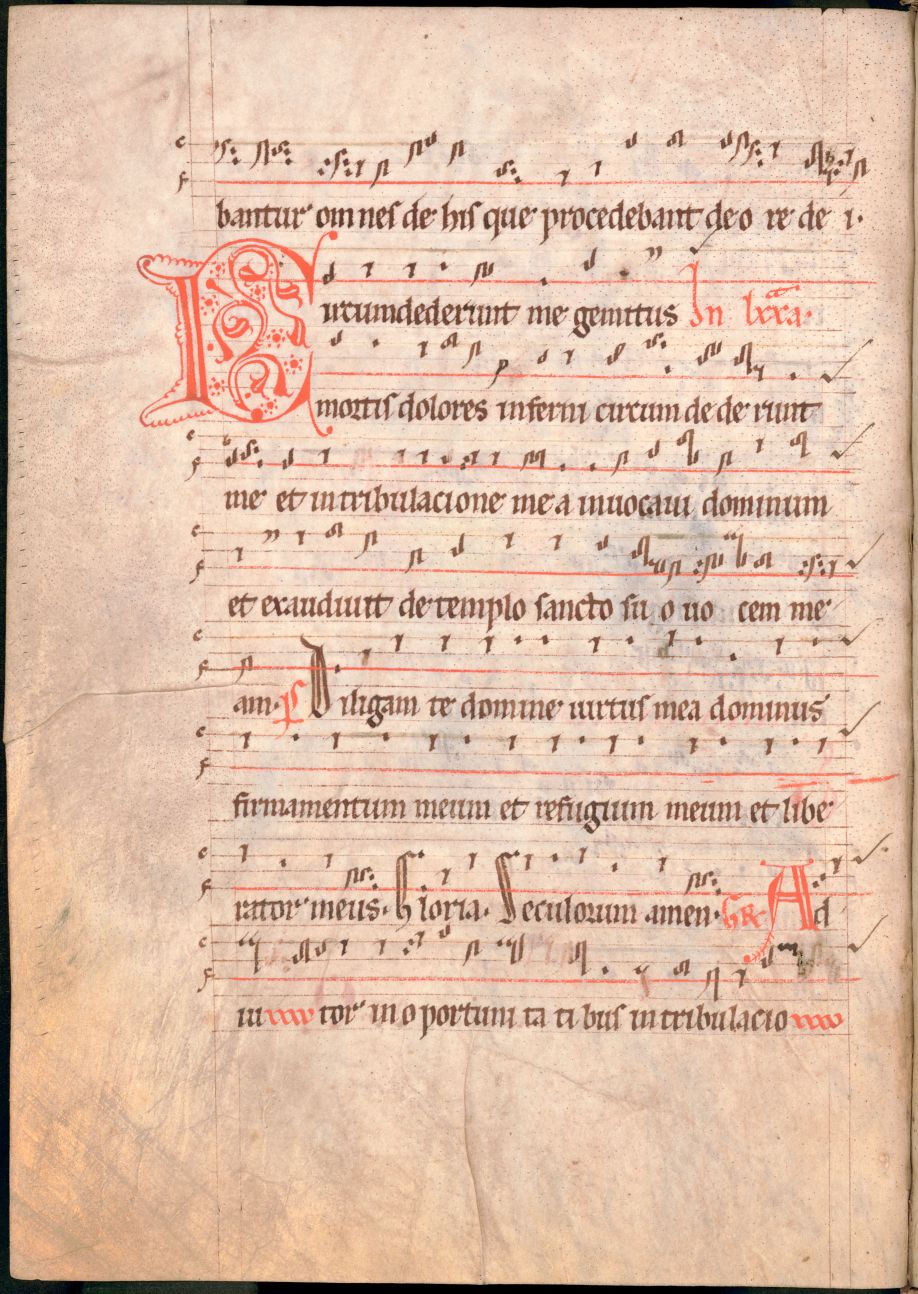 bantur omnes de his que procedebant de o re de i.
Circumdederunt me gemitus In lxxa.
mortis dolores inferni circum de de runt
me et in tribulacione me a inuocaui dominum
et exaudiuit de templo sancto su o uo cem me
am. ps Diligam te domine uirtus mea dominus
firmamentum meum et refugium meum et libe
rator meus. Gloria. Seculorum amen. GR Ad
iu tor in o portuni ta ti bus in tribulacio